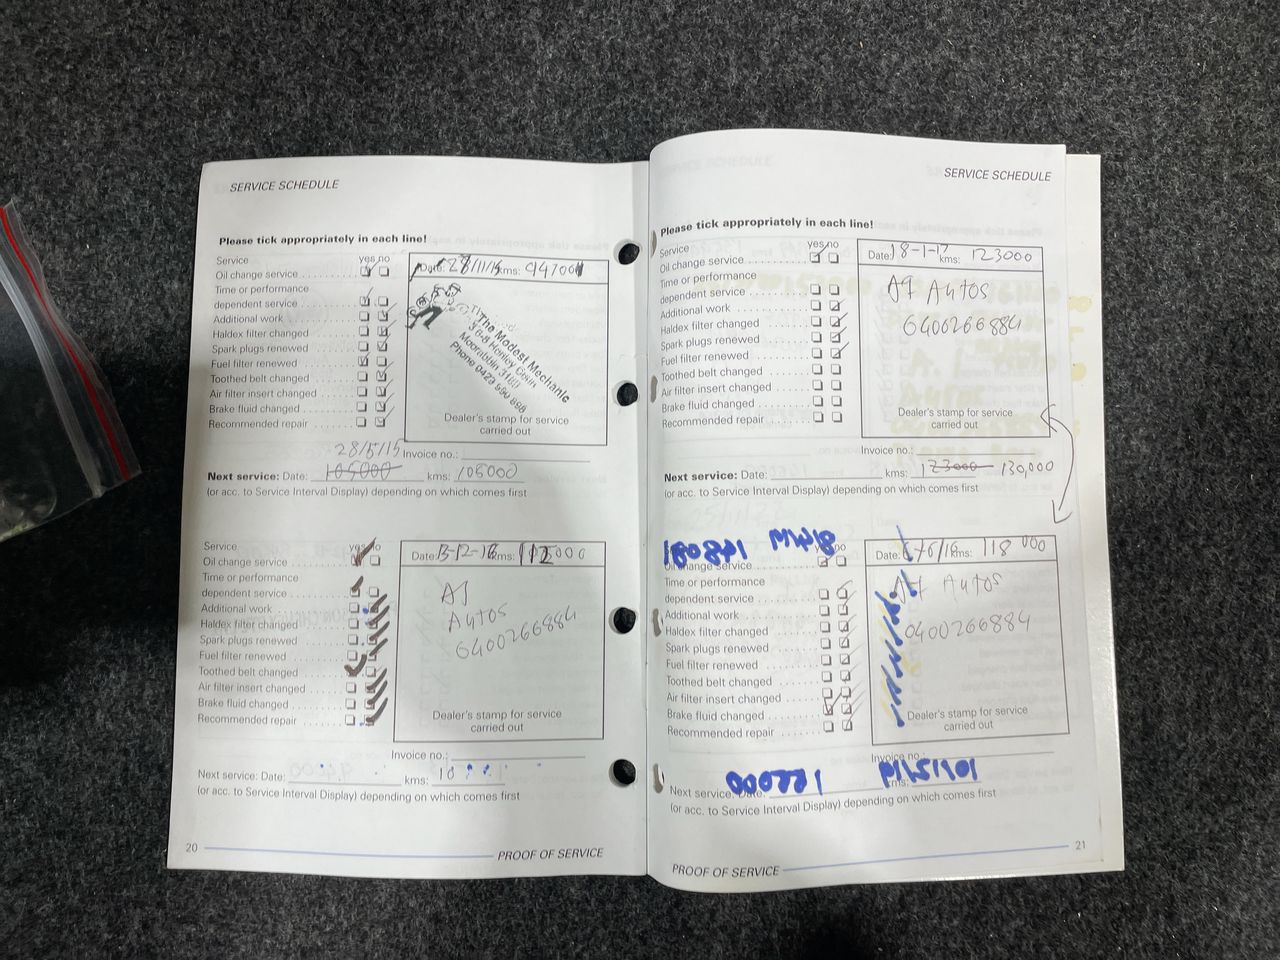 SERVICE SCHEDULE
Please tick appropriately in each line!
Service yes no
Oil change service
Time or performance
dependent service
Additional work
Haldex filter changed
Spark plugs renewed
Fuel filter renewed
Toothed belt changed
Air filter insert changed
Brake fluid changed
Recommended repair
Date: 28/11/15 kms:
The Modest Mechanic
Moorabbin
Phone 0423
Dealer's stamp for service
carried out
28/5/15 Invoice no.:
Next service: Date: 105000 kms: 105000
(or acc. to Service Interval Display) depending on which comes first
Service yes no
Oil change service
Time or performance
dependent service
Additional work
Haldex filter changed
Spark plugs renewed
Fuel filter renewed
Toothed belt changed
Air filter insert changed
Brake fluid changed
Recommended repair
Date: kms: 112000
Autos
0400266884
Dealer's stamp for service
carried out
Invoice no.:
Next service: Date: kms: 10
(or acc. to Service Interval Display) depending on which comes first
20 PROOF OF SERVICE
SERVICE SCHEDULE
Please tick appropriately in each line!
Service yes no
Oil change service
Time or performance
dependent service
Additional work
Haldex filter changed
Spark plugs renewed
Fuel filter renewed
Toothed belt changed
Air filter insert changed
Brake fluid changed
Recommended repair
Date: 18-1-17 kms: 123000
Autos
0400266884
Dealer's stamp for service
carried out
Invoice no.:
Next service: Date: kms: 123000 130,000
(or acc. to Service Interval Display) depending on which comes first
no
Oil change service
Time or performance
dependent service
Additional work
Haldex filter changed
Spark plugs renewed
Fuel filter renewed
Toothed belt changed
Air filter insert changed
Brake fluid changed
Recommended repair
Date: kms: 118000
Autos
0400266884
Dealer's stamp for service
carried out
Invoice no.:
Next service: Date: kms:
(or acc. to Service Interval Display) depending on which comes first
PROOF OF SERVICE 21